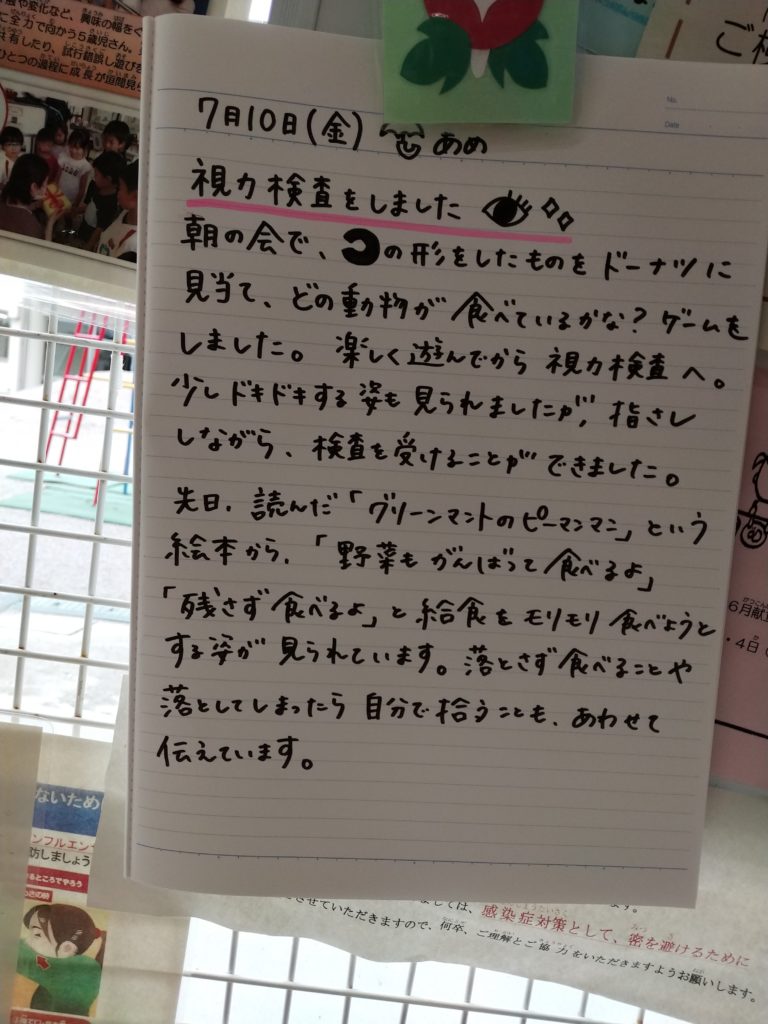 全力で向かう5歳児さん。
共有したり、試行錯誤し遊びを
ひとつの過程に成長が垣間見ら
No.
Date
7月10日(金) あめ
視力検査をしました
朝の会で、Cの形をしたものをドーナツに
見当て、どの動物が食べているかな?ゲームを
しました。楽しく遊んでから視力検査へ。
少しドキドキする姿も見られましたが、指さし
しながら、検査を受けることができました。
先日、読んだ「グリーンマントのピーマンマン」という
絵本から、「野菜もがんばって食べるよ」
「残さず食べるよ」と給食をモリモリ食べようと
する姿が見られています。落とさず食べることや
落としてしまったら自分で拾うことも、あわせて
伝えています。
6月献
・4日(
ないため
ンフルエン
防しましょう
るところでやろう
感染症対策として、密を避けるために
させていただきますので、何卒、ご理解とご協力をいただきますようお願いします。